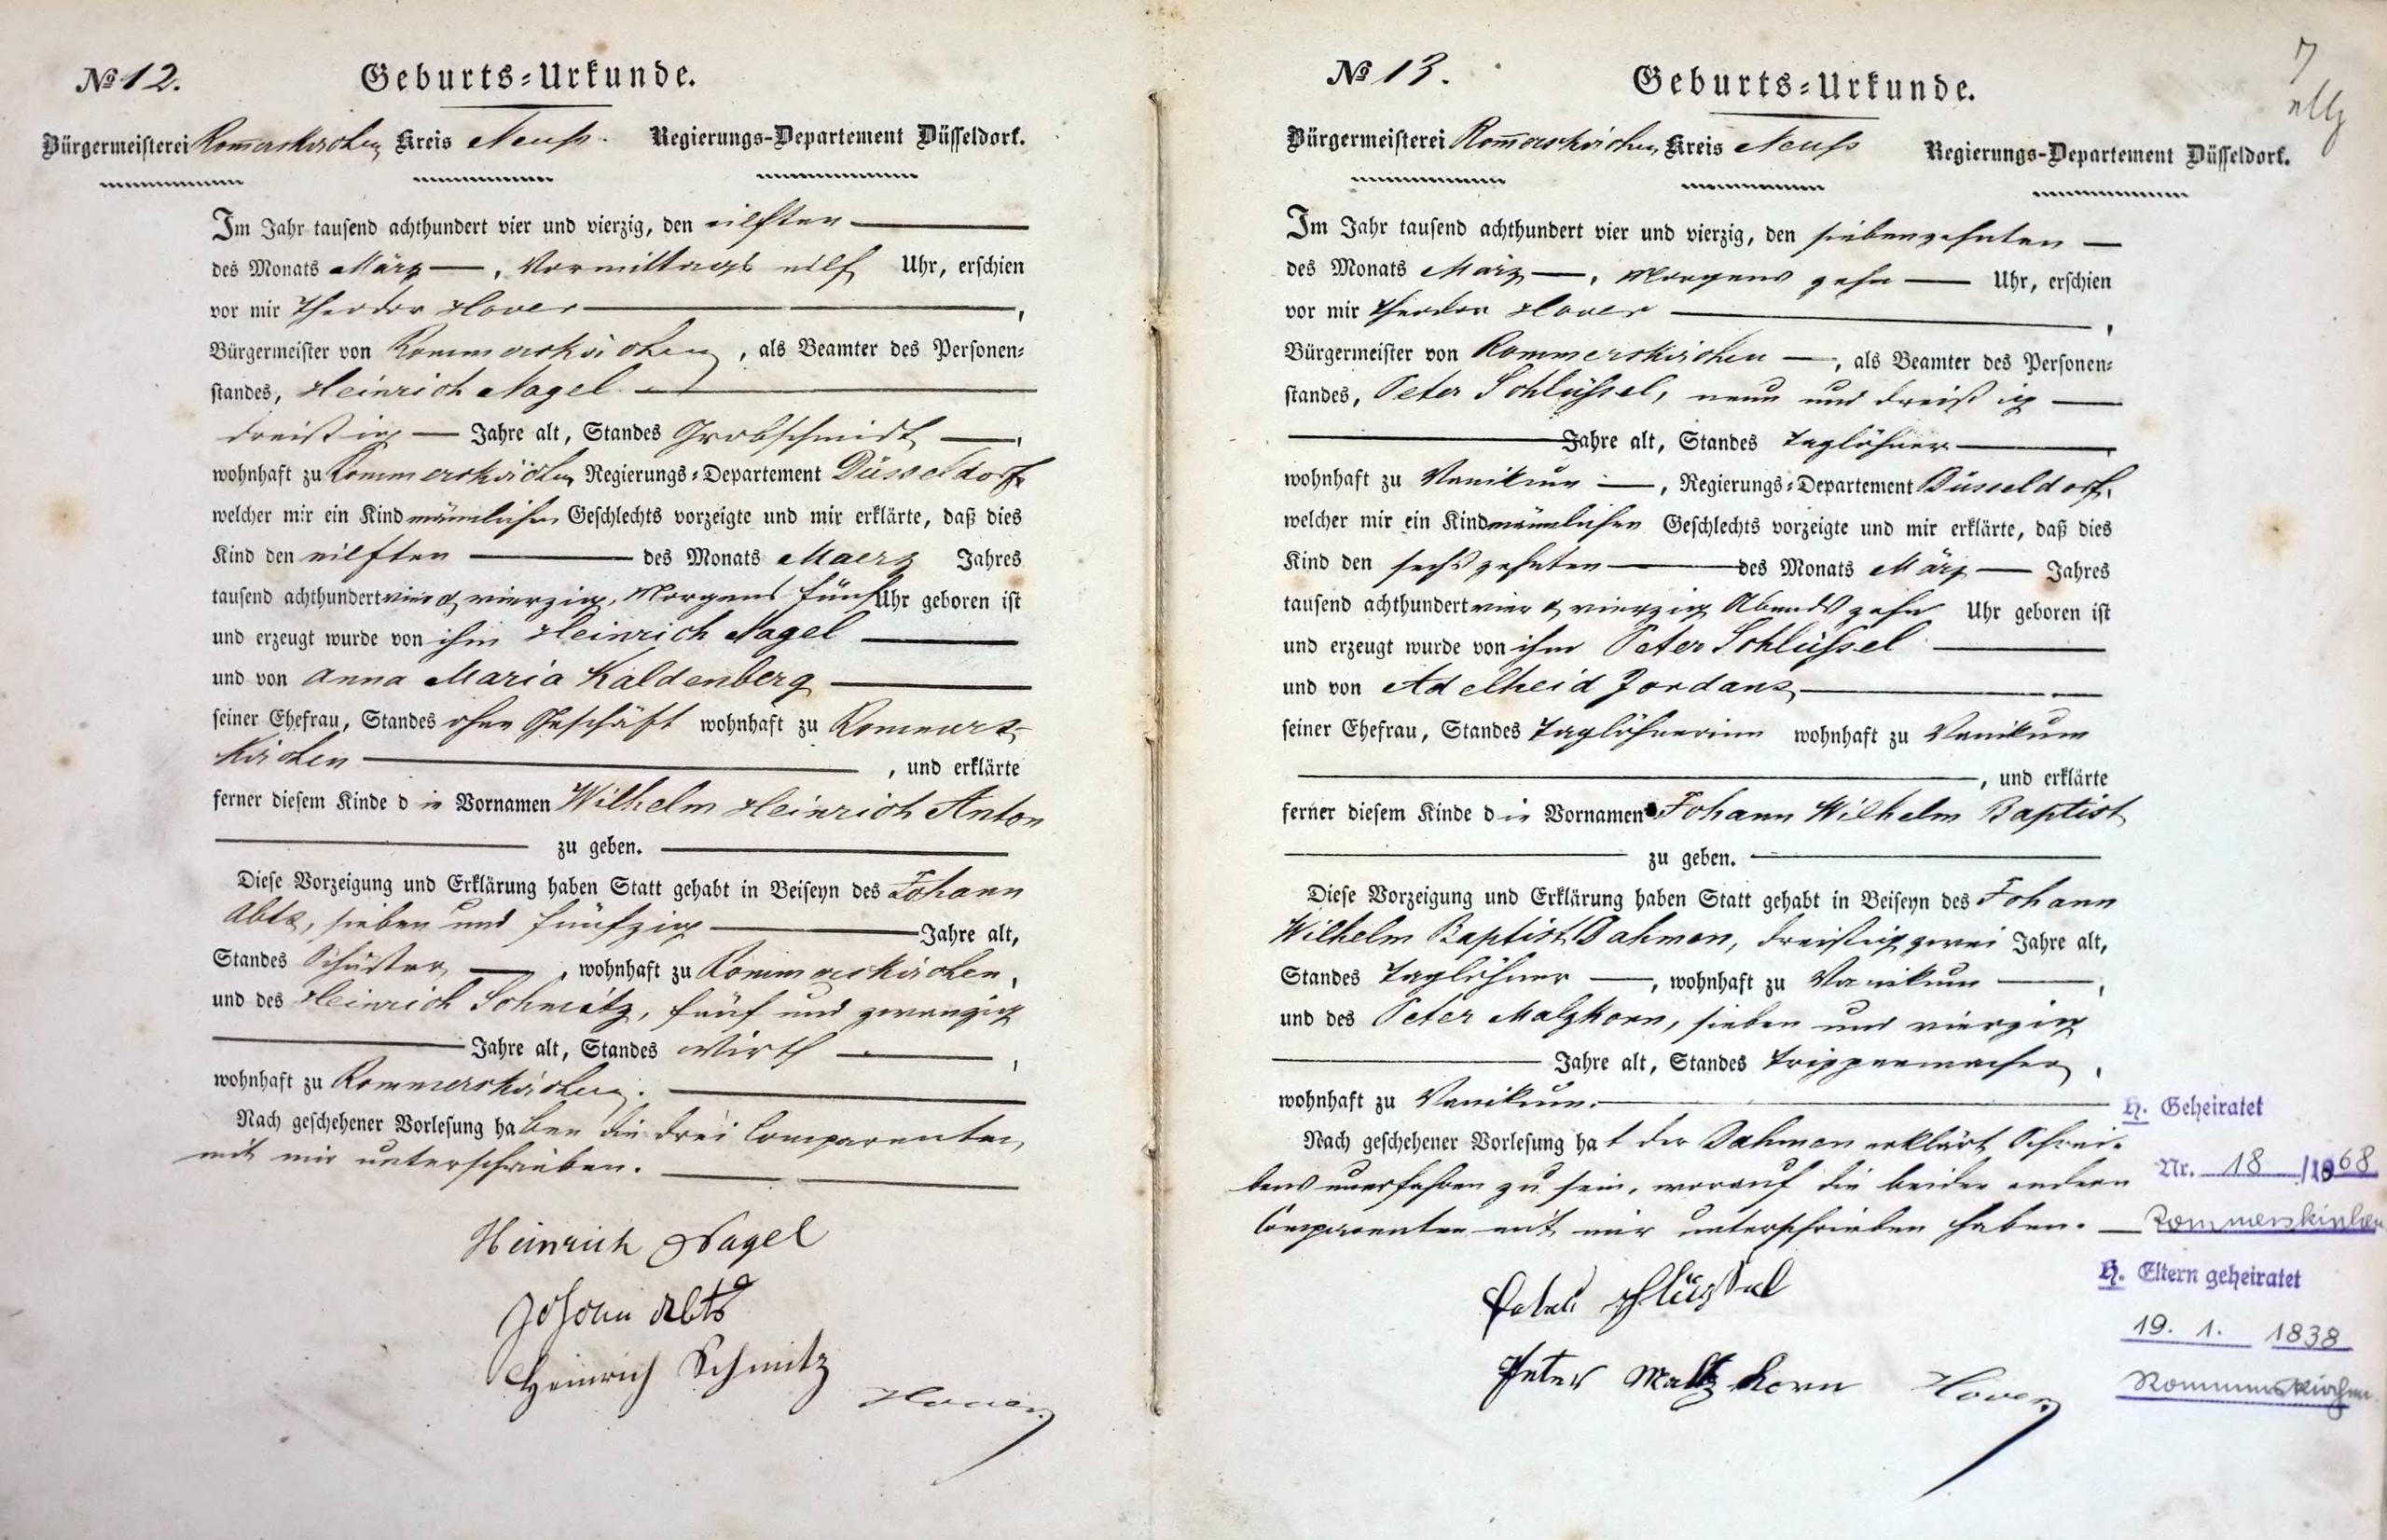 № 12.
Geburts=Urkunde.
Bürgermeisterei Rom̄erskirchen Kreis Neuſs. Regierungs-Departement Düſſeldorf.
Im Jahr tauſend achthundert vier und vierzig, den eilften
des Monats März, Vormittags eilf Uhr, erſchien
vor mir Theodor Hover,
Bürgermeiſter von Kommerskirchen, als Beamter des Perſonen=
ſtandes, Heinrich Nagel
dreißig Jahre alt, Standes Grobſchmidt,
wohnhaft zu Rommerskirchen Regierungs=Departement Düsseldorf,
welcher mir ein Kind männlichen Geſchlechts vorzeigte und mir erklärte, daß dies
Kind den eilften des Monats Maerz Jahres
tauſend achthundert vier & vierzig, Morgens fünf Uhr geboren iſt
und erzeugt wurde von ihm Heinrich Nagel
und von Anna Maria Kaldenberg
ſeiner Ehefrau, Standes ohne Geſchäft wohnhaft zu Rommers-
kirchen, und erklärte
ferner dieſem Kinde die Vornamen Wilhelm Heinrich Anton
zu geben.
Dieſe Vorzeigung und Erklärung haben Statt gehabt in Beiſeyn des Johann
Abts, ſieben und fünfzig Jahre alt,
Standes Schuster, wohnhaft zu Rommerskirchen,
und des Heinrich Schmitz, fünf und zwanzig
Jahre alt, Standes Wirth,
wohnhaft zu Rommerskirchen.
Nach geſchehener Vorleſung haben die drei Comparenten
mit mir unterſchrieben.
Heinrich Nagel
Johann Abts
Heinrich Schmitz
Hover
№ 13.
7
Geburts=Urkunde.
Bürgermeiſterei Rom̄erskirchen Kreis Neuſs Regierungs-Departement Düſſeldorf.
Im Jahr tauſend achthundert vier und vierzig, den ſiebenzehnten
des Monats März, Morgens zehn Uhr, erſchien
vor mir Theodor Hover,
Bürgermeiſter von Rommerskirchen, als Beamter des Perſonen=
ſtandes, Peter Schlüſsel, neun und dreißig
Jahre alt, Standes Taglöhner,
wohnhaft zu Vanikum, Regierungs=Departement Düsseldorf,
welcher mir ein Kind männlichen Geſchlechts vorzeigte und mir erklärte, daß dies
Kind den ſechszehnten des Monats März Jahres
tauſend achthundert vier & vierzig Abends zehn Uhr geboren iſt
und erzeugt wurde von ihm Peter Schlüſsel
und von Adelheid Jordans
ſeiner Ehefrau, Standes Taglöhnerinn wohnhaft zu Vanikum
, und erklärte
ferner dieſem Kinde die Vornamen Johann Wilhelm Baptist
zu geben.
Dieſe Vorzeigung und Erklärung haben Statt gehabt in Beiſeyn des Johann
Wilhelm Baptist Dahmen, dreißig zwei Jahre alt,
Standes Taglöhner, wohnhaft zu Vanikum,
und des Peter Malzkorn, ſieben und vierzig
Jahre alt, Standes Trippenmacher,
wohnhaft zu Vanikum.
Nach geſchehener Vorleſung hat der Dahmen erklärt Schrei-
bens unerfahren zu ſein, worauf die beiden andern
Comparenten mit mir unterſchrieben haben.
Peter Schlüſsel
Peter Maltzkorn
Hover
H. Geheiratet
Nr. 18 /1868
Rommerskirchen
H. Eltern geheiratet
19. 1. 1838
Rommerskirchen